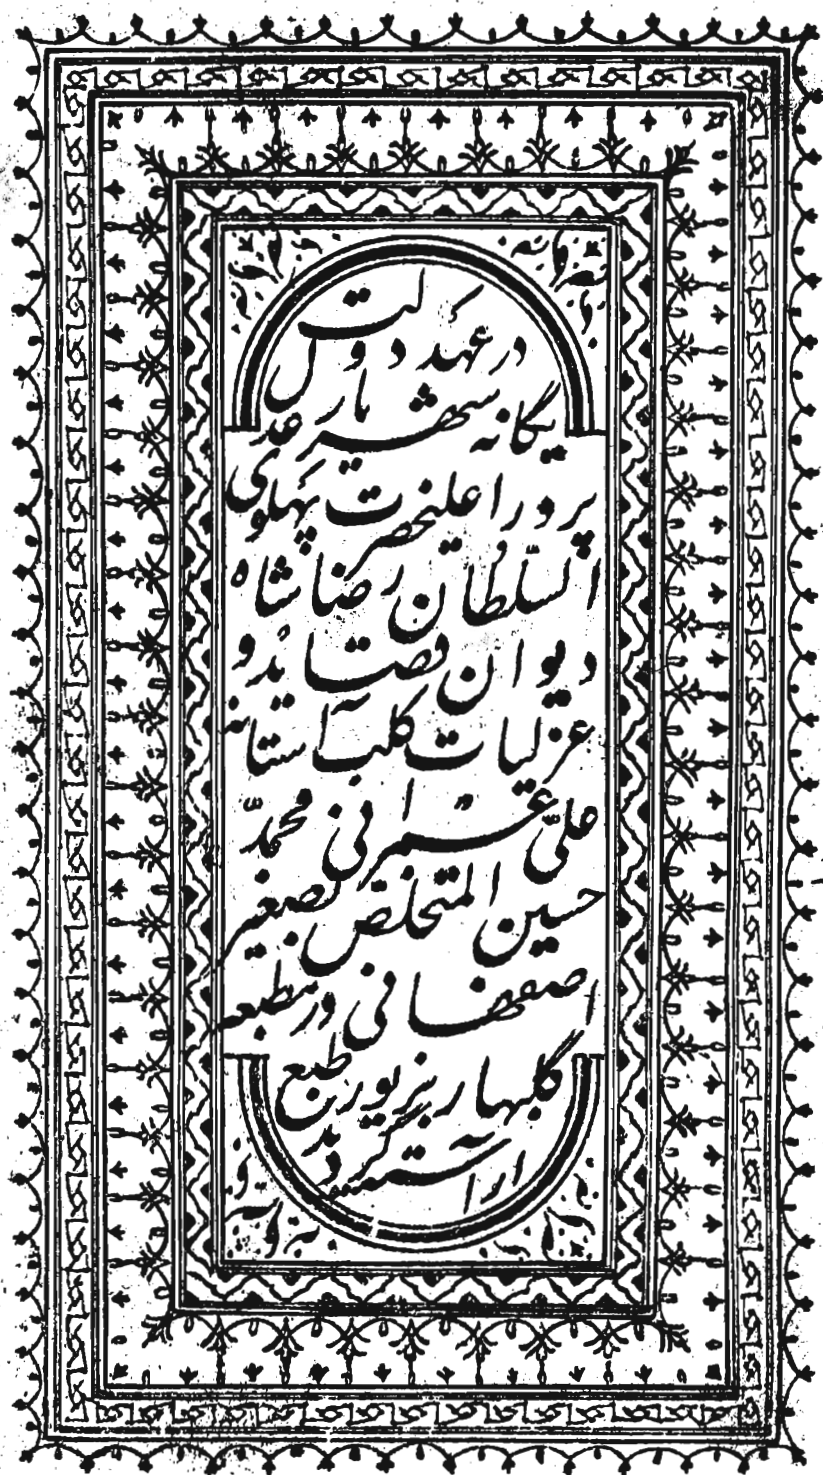 در عهد دولت
یگانه شهریار عدل
پرور اعلیحضرت پهلوی
السّلطان رضا شاه
دیوان قصاید و
غزلیات کلب آستانه
علیّ عمرانی محمّد
حسین المتخلّص بصغیر
اصفهانی در مطبعه
گلبهار بزیور طبع
آراسته گردید